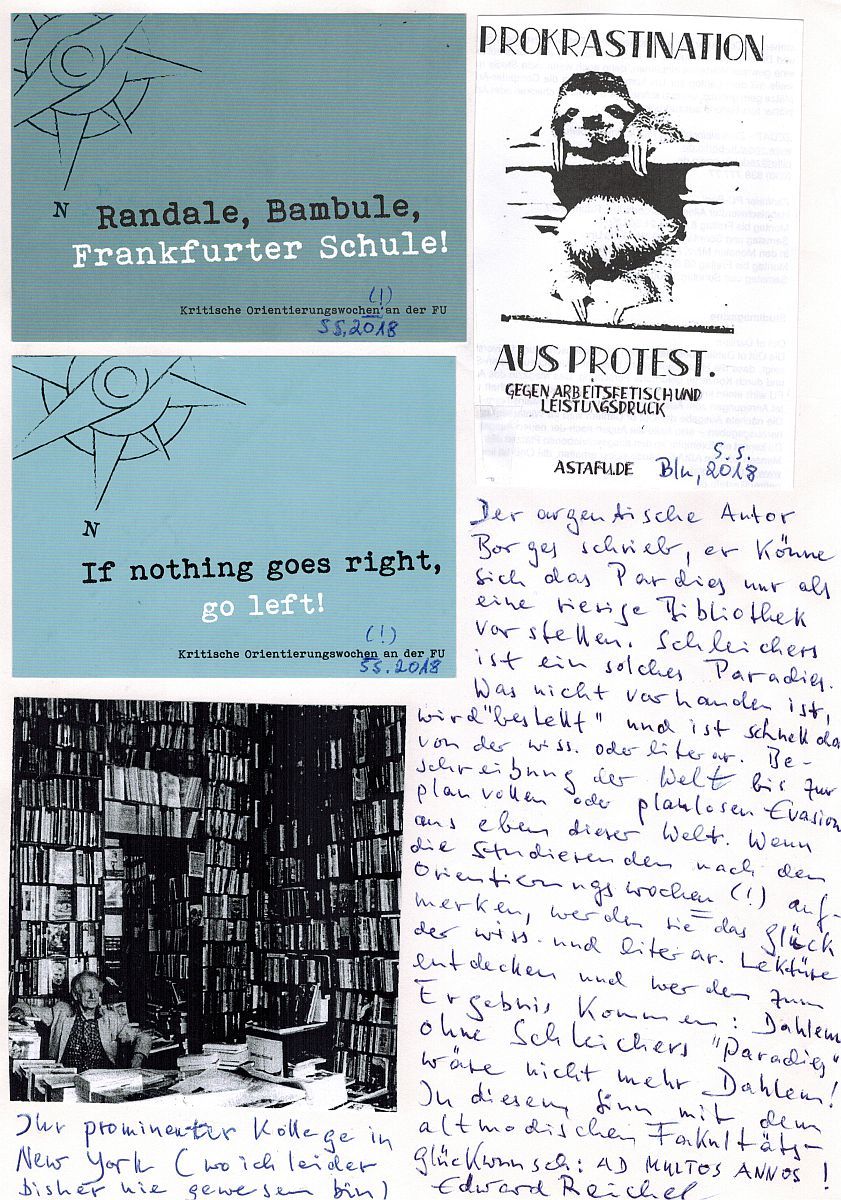 N
Randale, Bambule,
Frankfurter Schule!
(!)
Kritische Orientierungswochen an der FU
SS, 2018
PROKRASTINATION
AUS PROTEST.
GEGEN ARBEITSFETISCH UND
LEISTUNGSDRUCK
S.S.
ASTAFU.DE Bln, 2018
N
If nothing goes right,
go left!
(!)
Kritische Orientierungswochen an der FU
SS. 2018
Der argentische Autor
Borges schrieb, er könne
sich das Paradies nur als
eine riesige Bibliothek
vorstellen. Schleichers
ist ein solches Paradies.
Was nicht vorhanden ist,
wird "bestellt" und ist schnell da
von der wiss. oder literar. Be-
schreibung der Welt bis zur
planvollen oder planlosen Evasion
aus eben dieser Welt. Wenn
die Studierenden nach den
Orientierungswochen (!) auf-
merken, werden sie das Glück
der wiss. und literar. Lektüre
entdecken und werden zum
Ergebnis kommen: Dahlem
ohne Schleichers "Paradies"
wäre nicht mehr Dahlem!
In diesem Sinn mit dem
altmodischen Fakultäts-
glückwunsch: AD MULTOS ANNOS !
Edward Reichel
Ihr prominenter Kollege in
New York (wo ich leider
bisher nie gewesen bin)